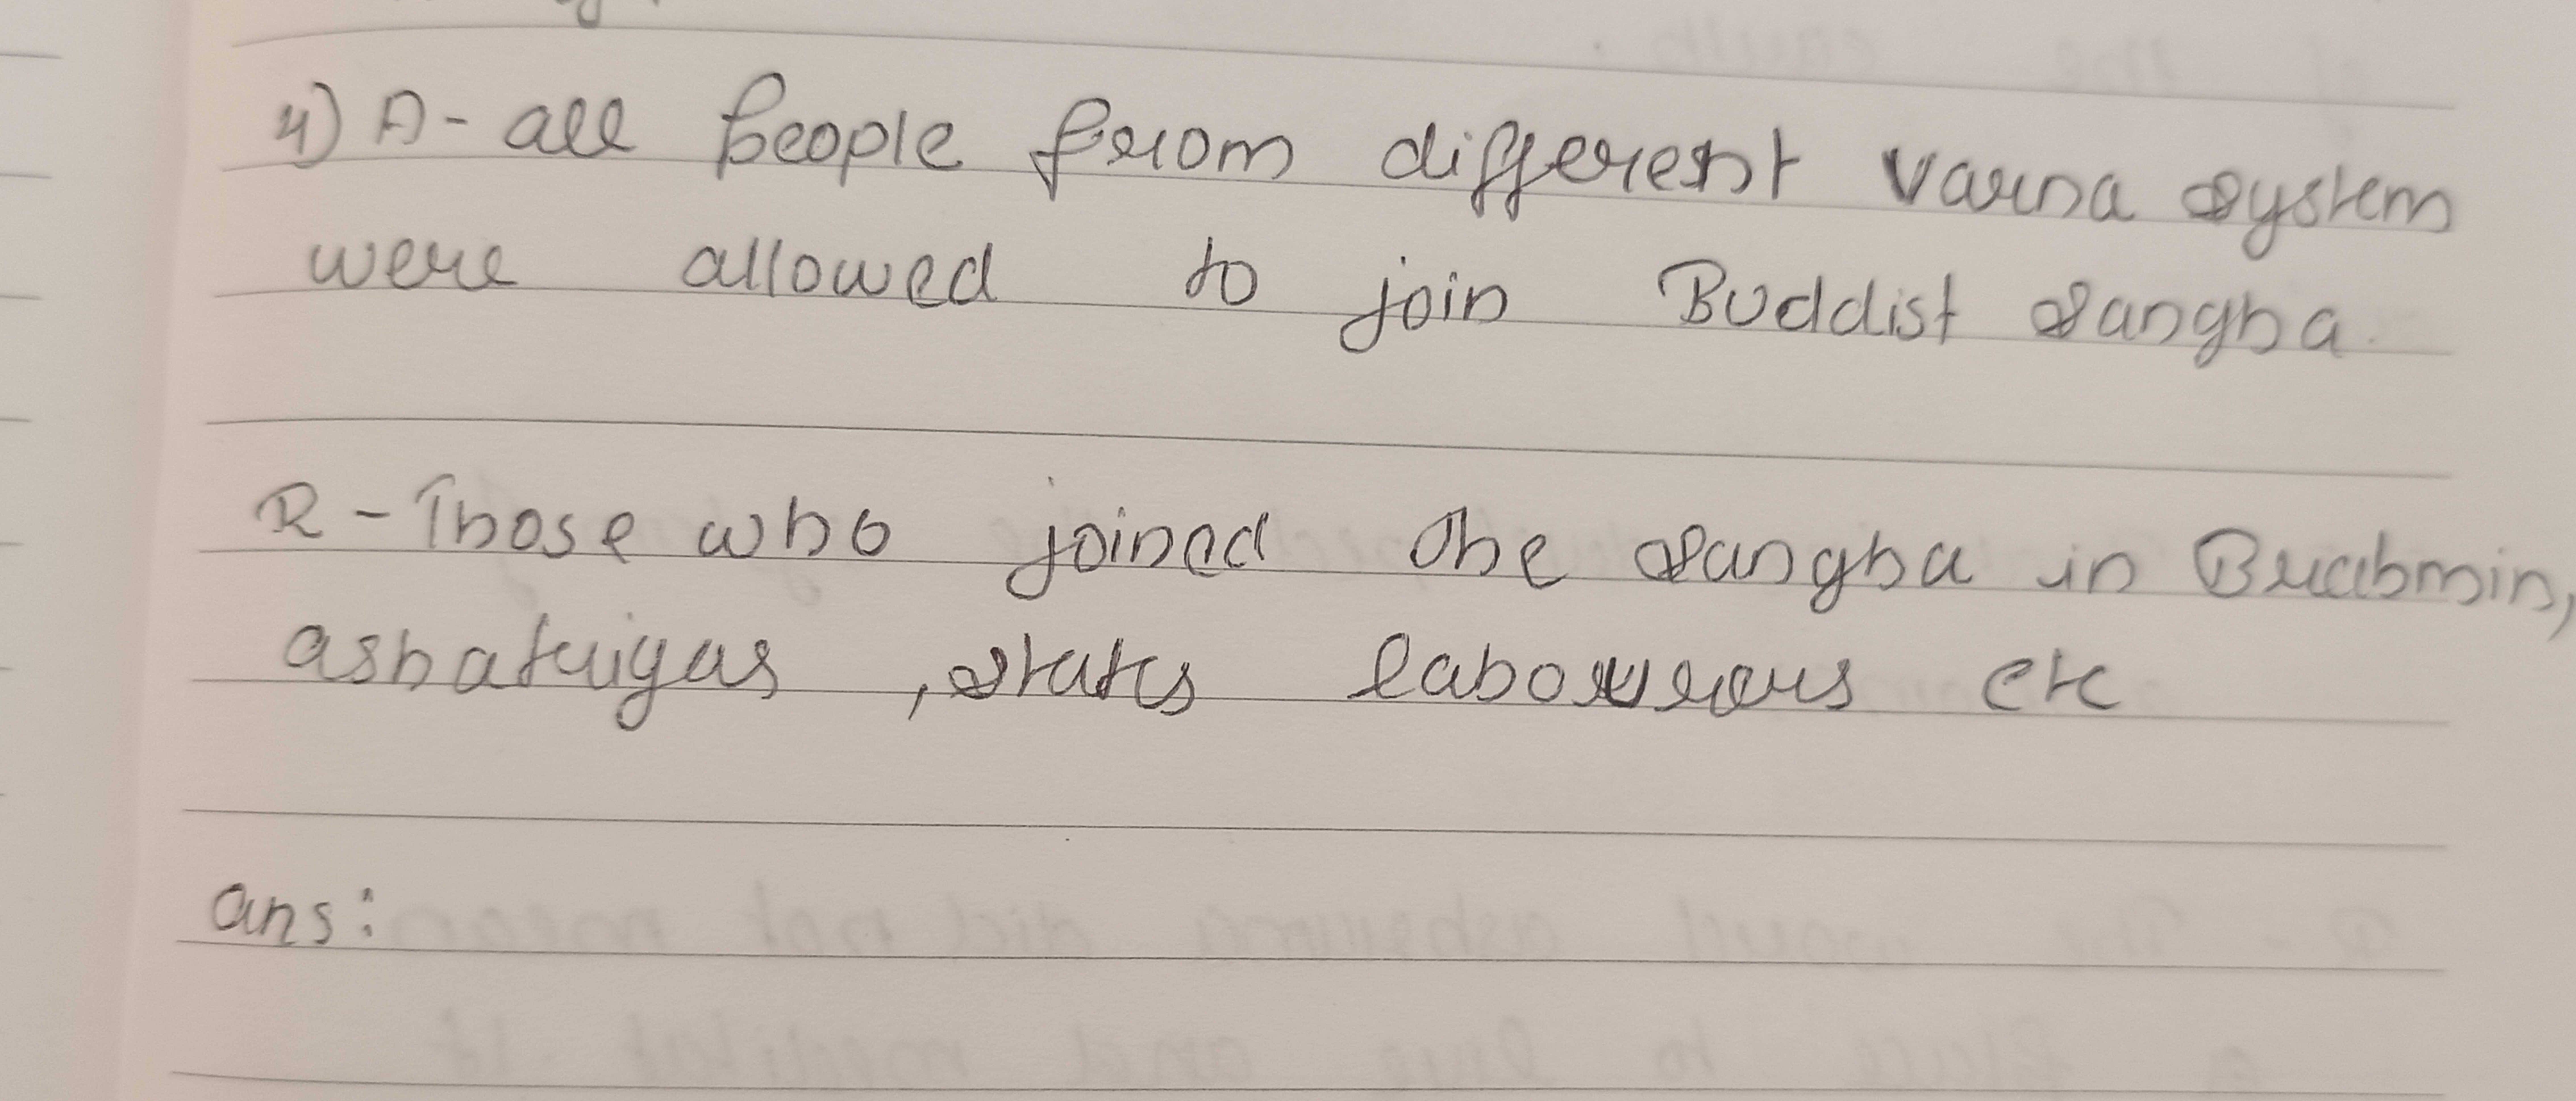 4) A - all people from different varna system
were allowed to join Buddist sangha.
R - Those who joined the sangha in Brahmin,
ashatriyas , states labourers etc
ans: